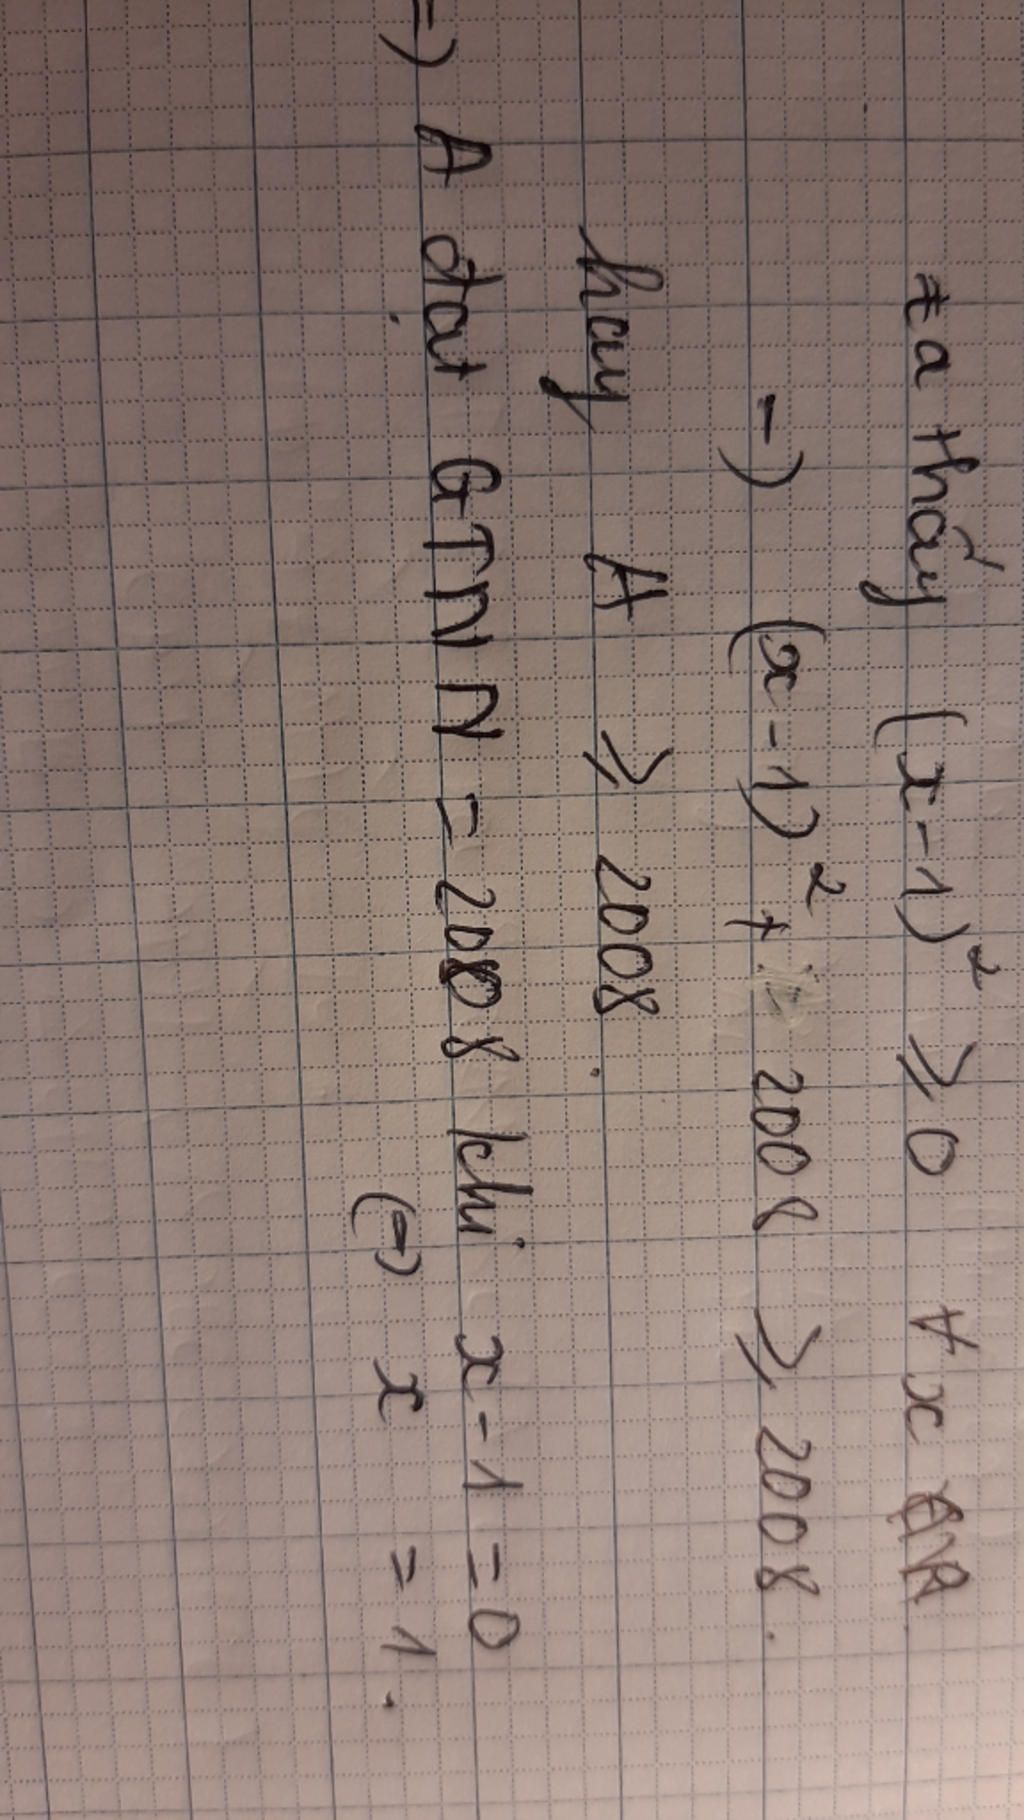 ta thấy (x-1)² ≥ 0 ∀ x ∈ R
=) (x-1)² + 2008 ≥ 2008.
hay A ≥ 2008.
=) A đạt GTNN = 2008 khi x-1 = 0
(=) x = 1.